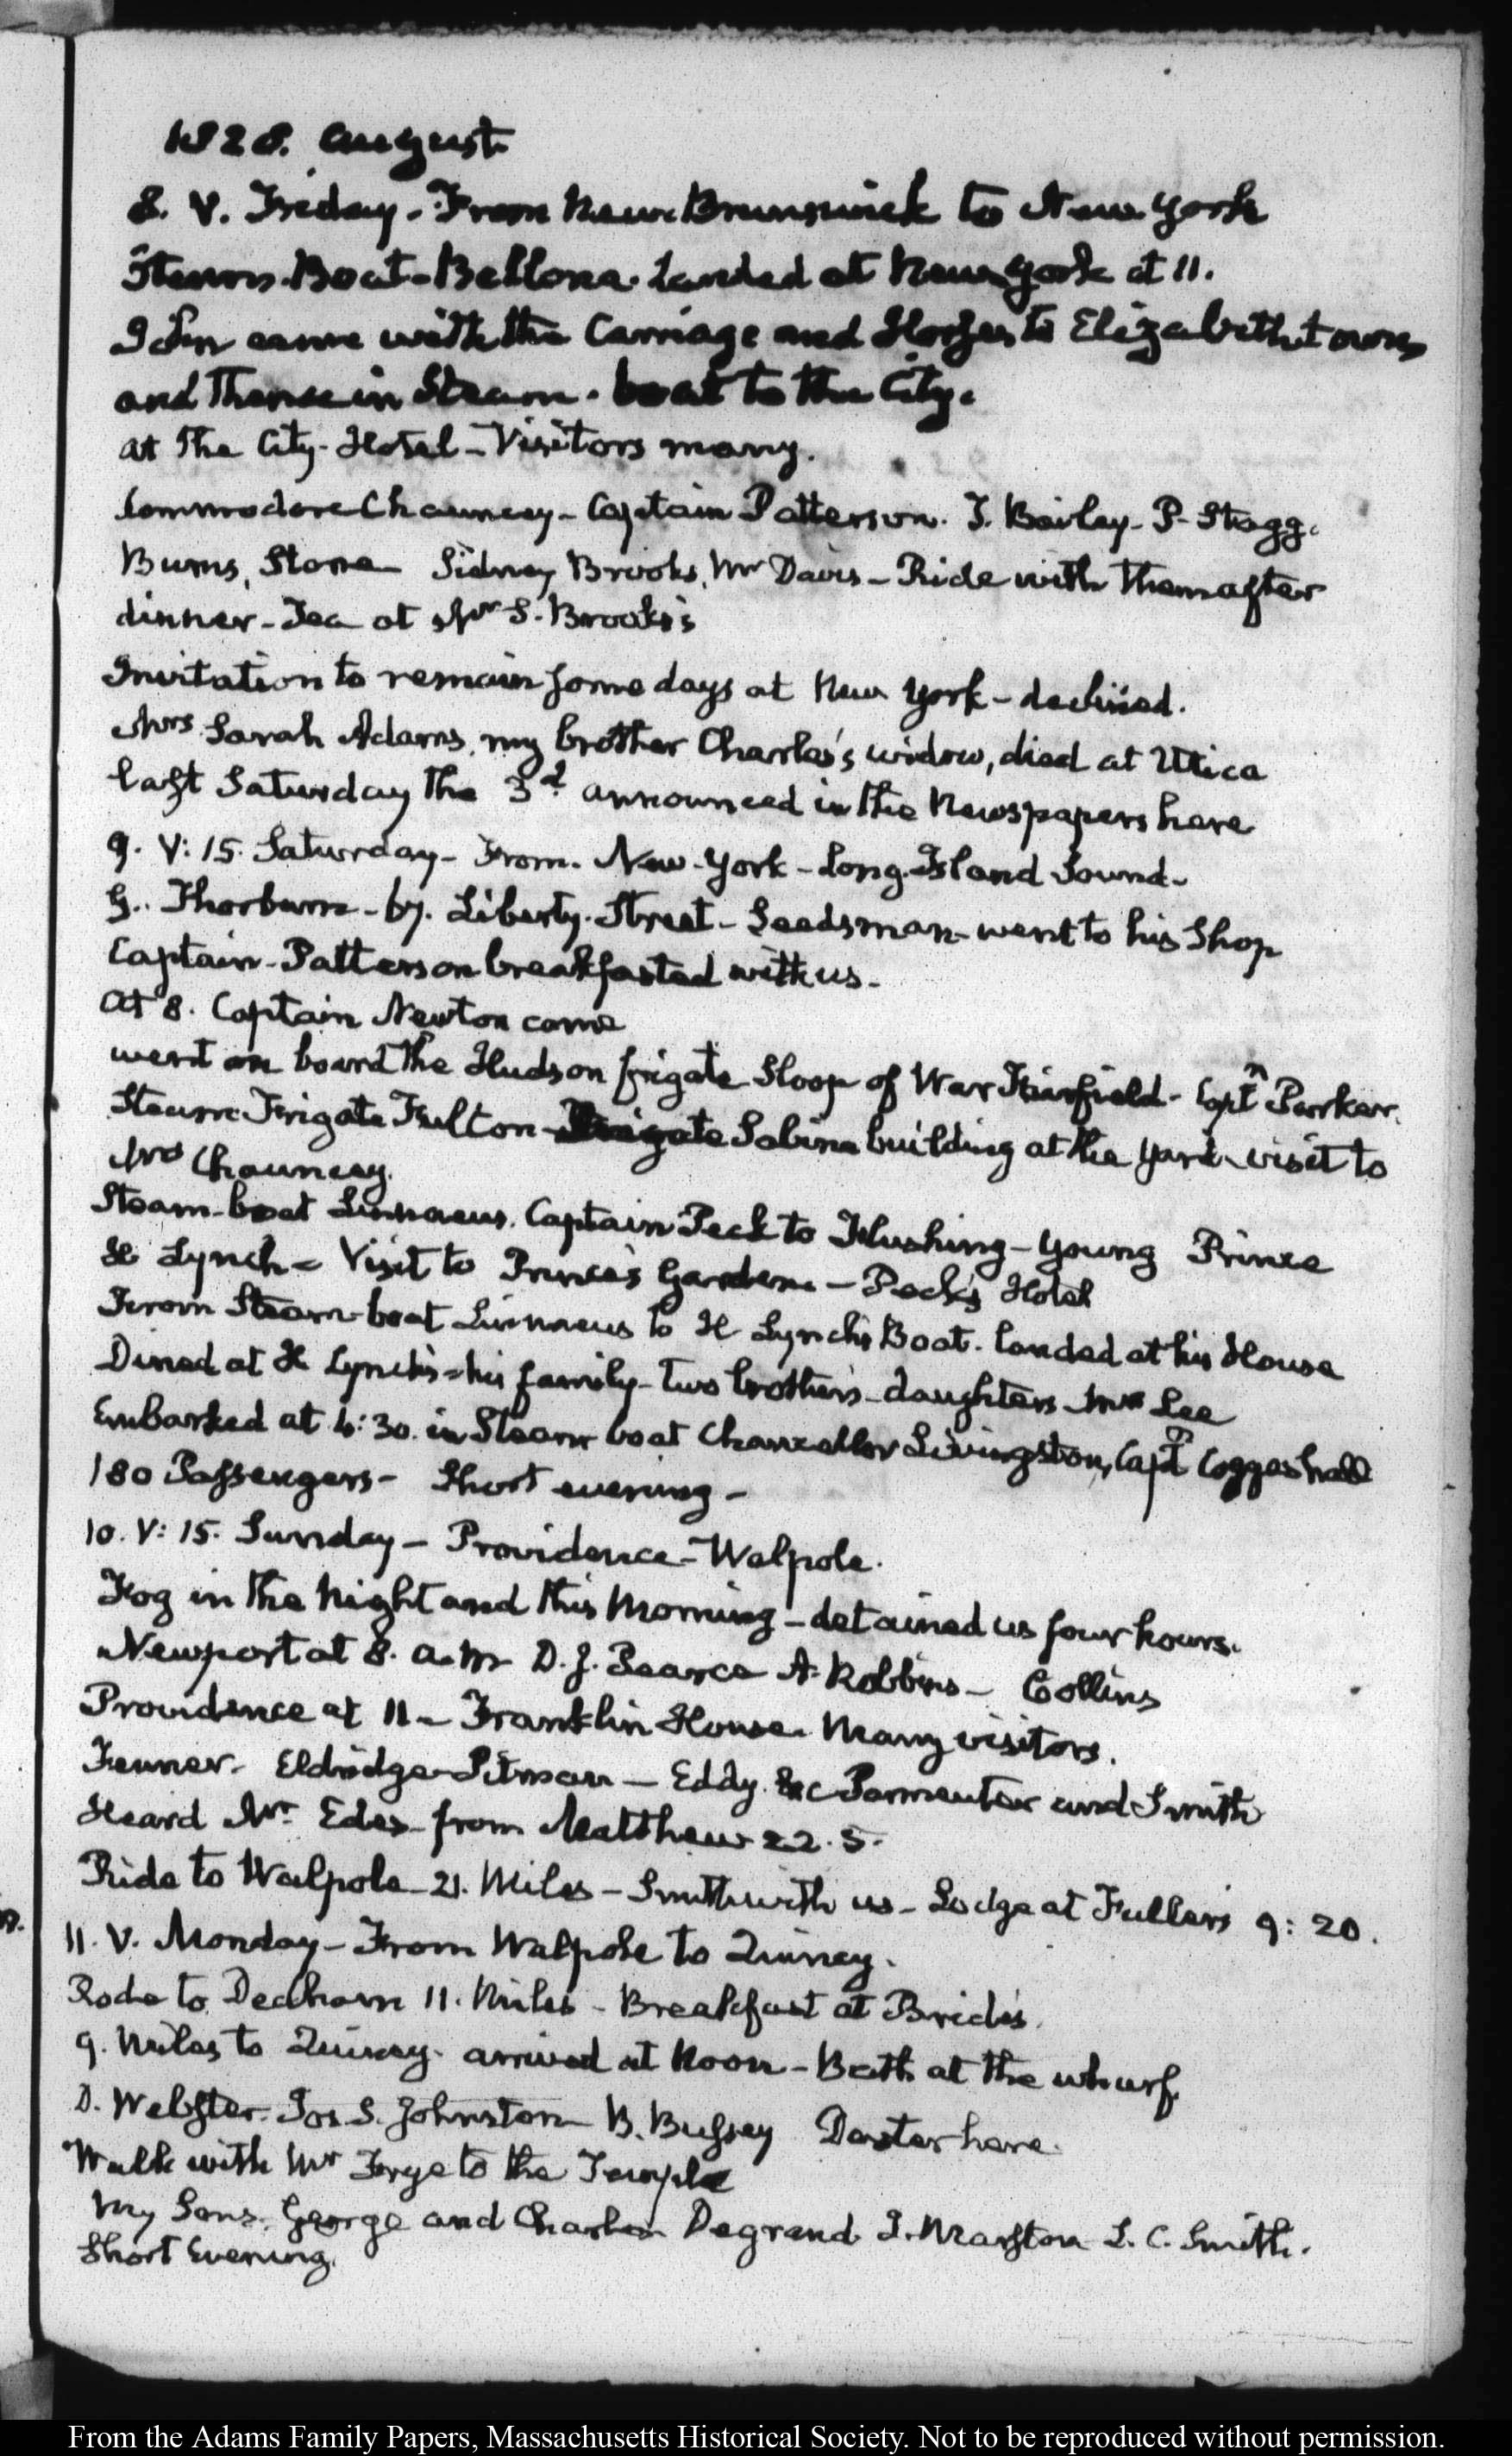 1828. August
8. V. Friday - From New Brunswick to New York
Steam-Boat-Bellona. Landed at New York at 11.
John came with the Carriage and Horses to Elizabethtown
and thence in Steam-boat to the City.
at the City-Hotel - Visitors many.
Commodore Chauncey - Captain Patterson. T. Bailey - P. Stagg.
Burns, Stone Sidney Brooks, Mr Davis - Ride with them after
dinner - Tea at Mr S. Brooks's
Invitation to remain some days at New York - declined.
Mrs Sarah Adams, my brother Charles's widow, died at Utica
last Saturday the 3d. announced in the Newspapers here
9. V: 15. Saturday - From New-York - Long-Island Sound -
G. Thorburn - 67. Liberty-Street - Seedsman - went to his Shop
Captain Patterson breakfasted with us -
At 8. Captain Newton came
went on board the Hudson frigate Sloop of War Fairfield - Captn Parker.
Steam Frigate Fulton - Frigate Sabine building at the yard - visit to
Mrs Chauncey.
Steam-boat Linnaeus. Captain Peck to Flushing - Young Prince
H Lynch - Visit to Prince's Garden - Peck's Hotel
From Steam-boat Linnaeus to H Lynch's Boat. landed at his House
Dined at H Lynch's - his family - two brothers - daughters - Mrs Lee
Embarked at 6:30. in Steam boat Chancellor Livingston, Captn Coggeshall
180 Passengers - Short evening -
10. V: 15. Sunday - Providence - Walpole.
Fog in the Night and this Morning - detained us four hours.
Newport at 8. a.m D. J. Pearce A. Robbins - Collins
Providence at 11 - Franklin House. Many visitors.
Fenner. Eldridge Pitman - Eddy. &c Parmenter and Smith
Heard Mr. Edes - from Matthew 22. 5.
Ride to Walpole - 21. Miles - Smith with us - Lodge at Fuller's 9: 20.
11. V. Monday - From Walpole to Quincy.
Rode to Dedham 11. Miles - Breakfast at Bride's.
9. Miles to Quincy. arrived at Noon - Bath at the wharf.
D. Webster. Jos. S. Johnston B. Bussey Dexter here.
Walk with Mr Frye to the Temple
My Sons. George and Charles Degrand J. Marston L. C. Smith.
Short Evening.
From the Adams Family Papers, Massachusetts Historical Society. Not to be reproduced without permission.